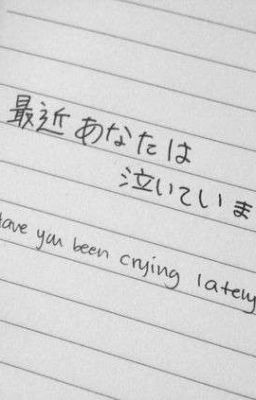 最近あなたは
泣いていま
have you been crying lately